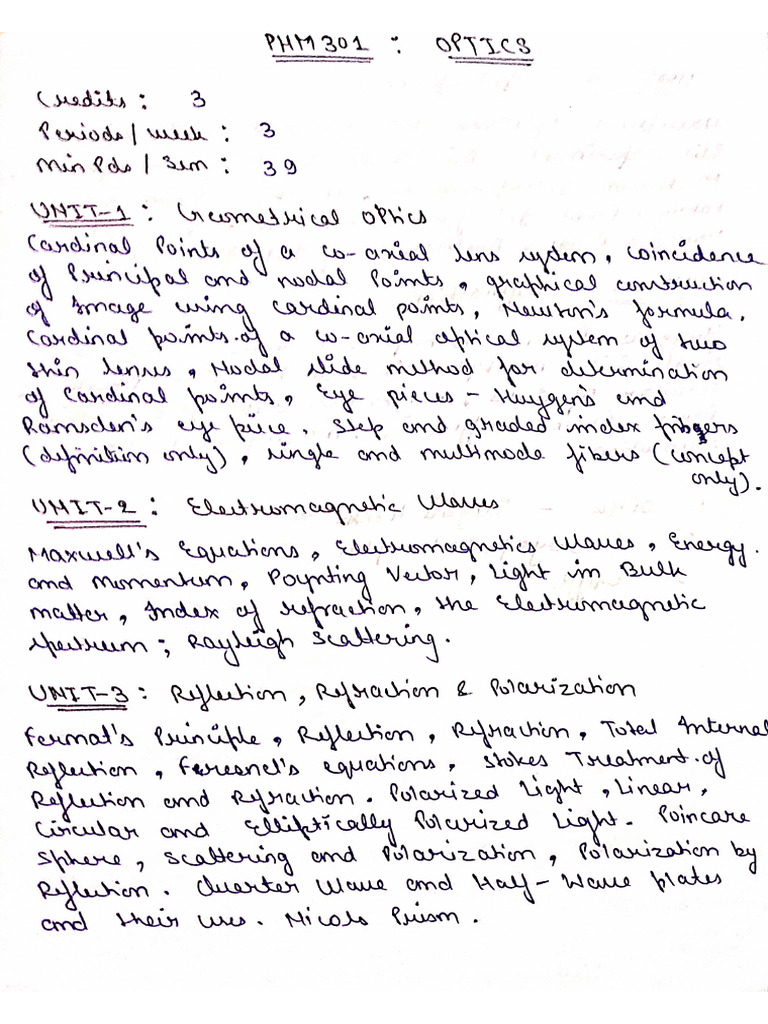 PHM301 : OPTICS
Credits : 3
Periods / week : 3
Min Pds / Sem : 39
UNIT-1 : Geometrical Optics
Cardinal Points of a co-axial lens system, Coincidence
of Principal and nodal Points, graphical construction
of Image using cardinal points, Newton's formula.
Cardinal points of a co-axial optical system of two
thin lenses, Nodal slide method for determination
of Cardinal points, Eye pieces - Huygen's and
Ramsden's eye piece. Step and graded index fibers
(definition only), single and multimode fibers (concept
only).
UNIT-2 : Electromagnetic Waves
Maxwell's Equations, Electromagnetics Waves, Energy
and Momentum, Poynting Vector, Light in Bulk
matter, Index of refraction, the Electromagnetic
spectrum; Rayleigh Scattering.
UNIT-3 : Reflection, Refraction & Polarization
Fermat's Principle, Reflection, Refraction, Total Internal
Reflection, Fresnel's equations, Stokes Treatment of
Reflection and Refraction. Polarized Light, Linear,
Circular and Elliptically Polarized Light. Poincare
Sphere, Scattering and Polarization, Polarization by
Reflection. Quarter Wave and Half-Wave plates
and their uses. Nicols Prism.